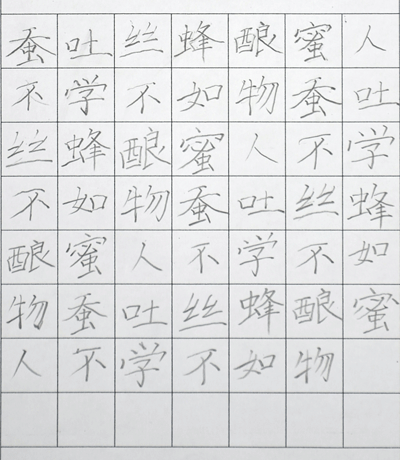 蚕吐丝蜂酿蜜人
不学不如物蚕吐
丝蜂酿蜜人不学
不如物蚕吐丝蜂
酿蜜人不学不如
物蚕吐丝蜂酿蜜
人不学不如物